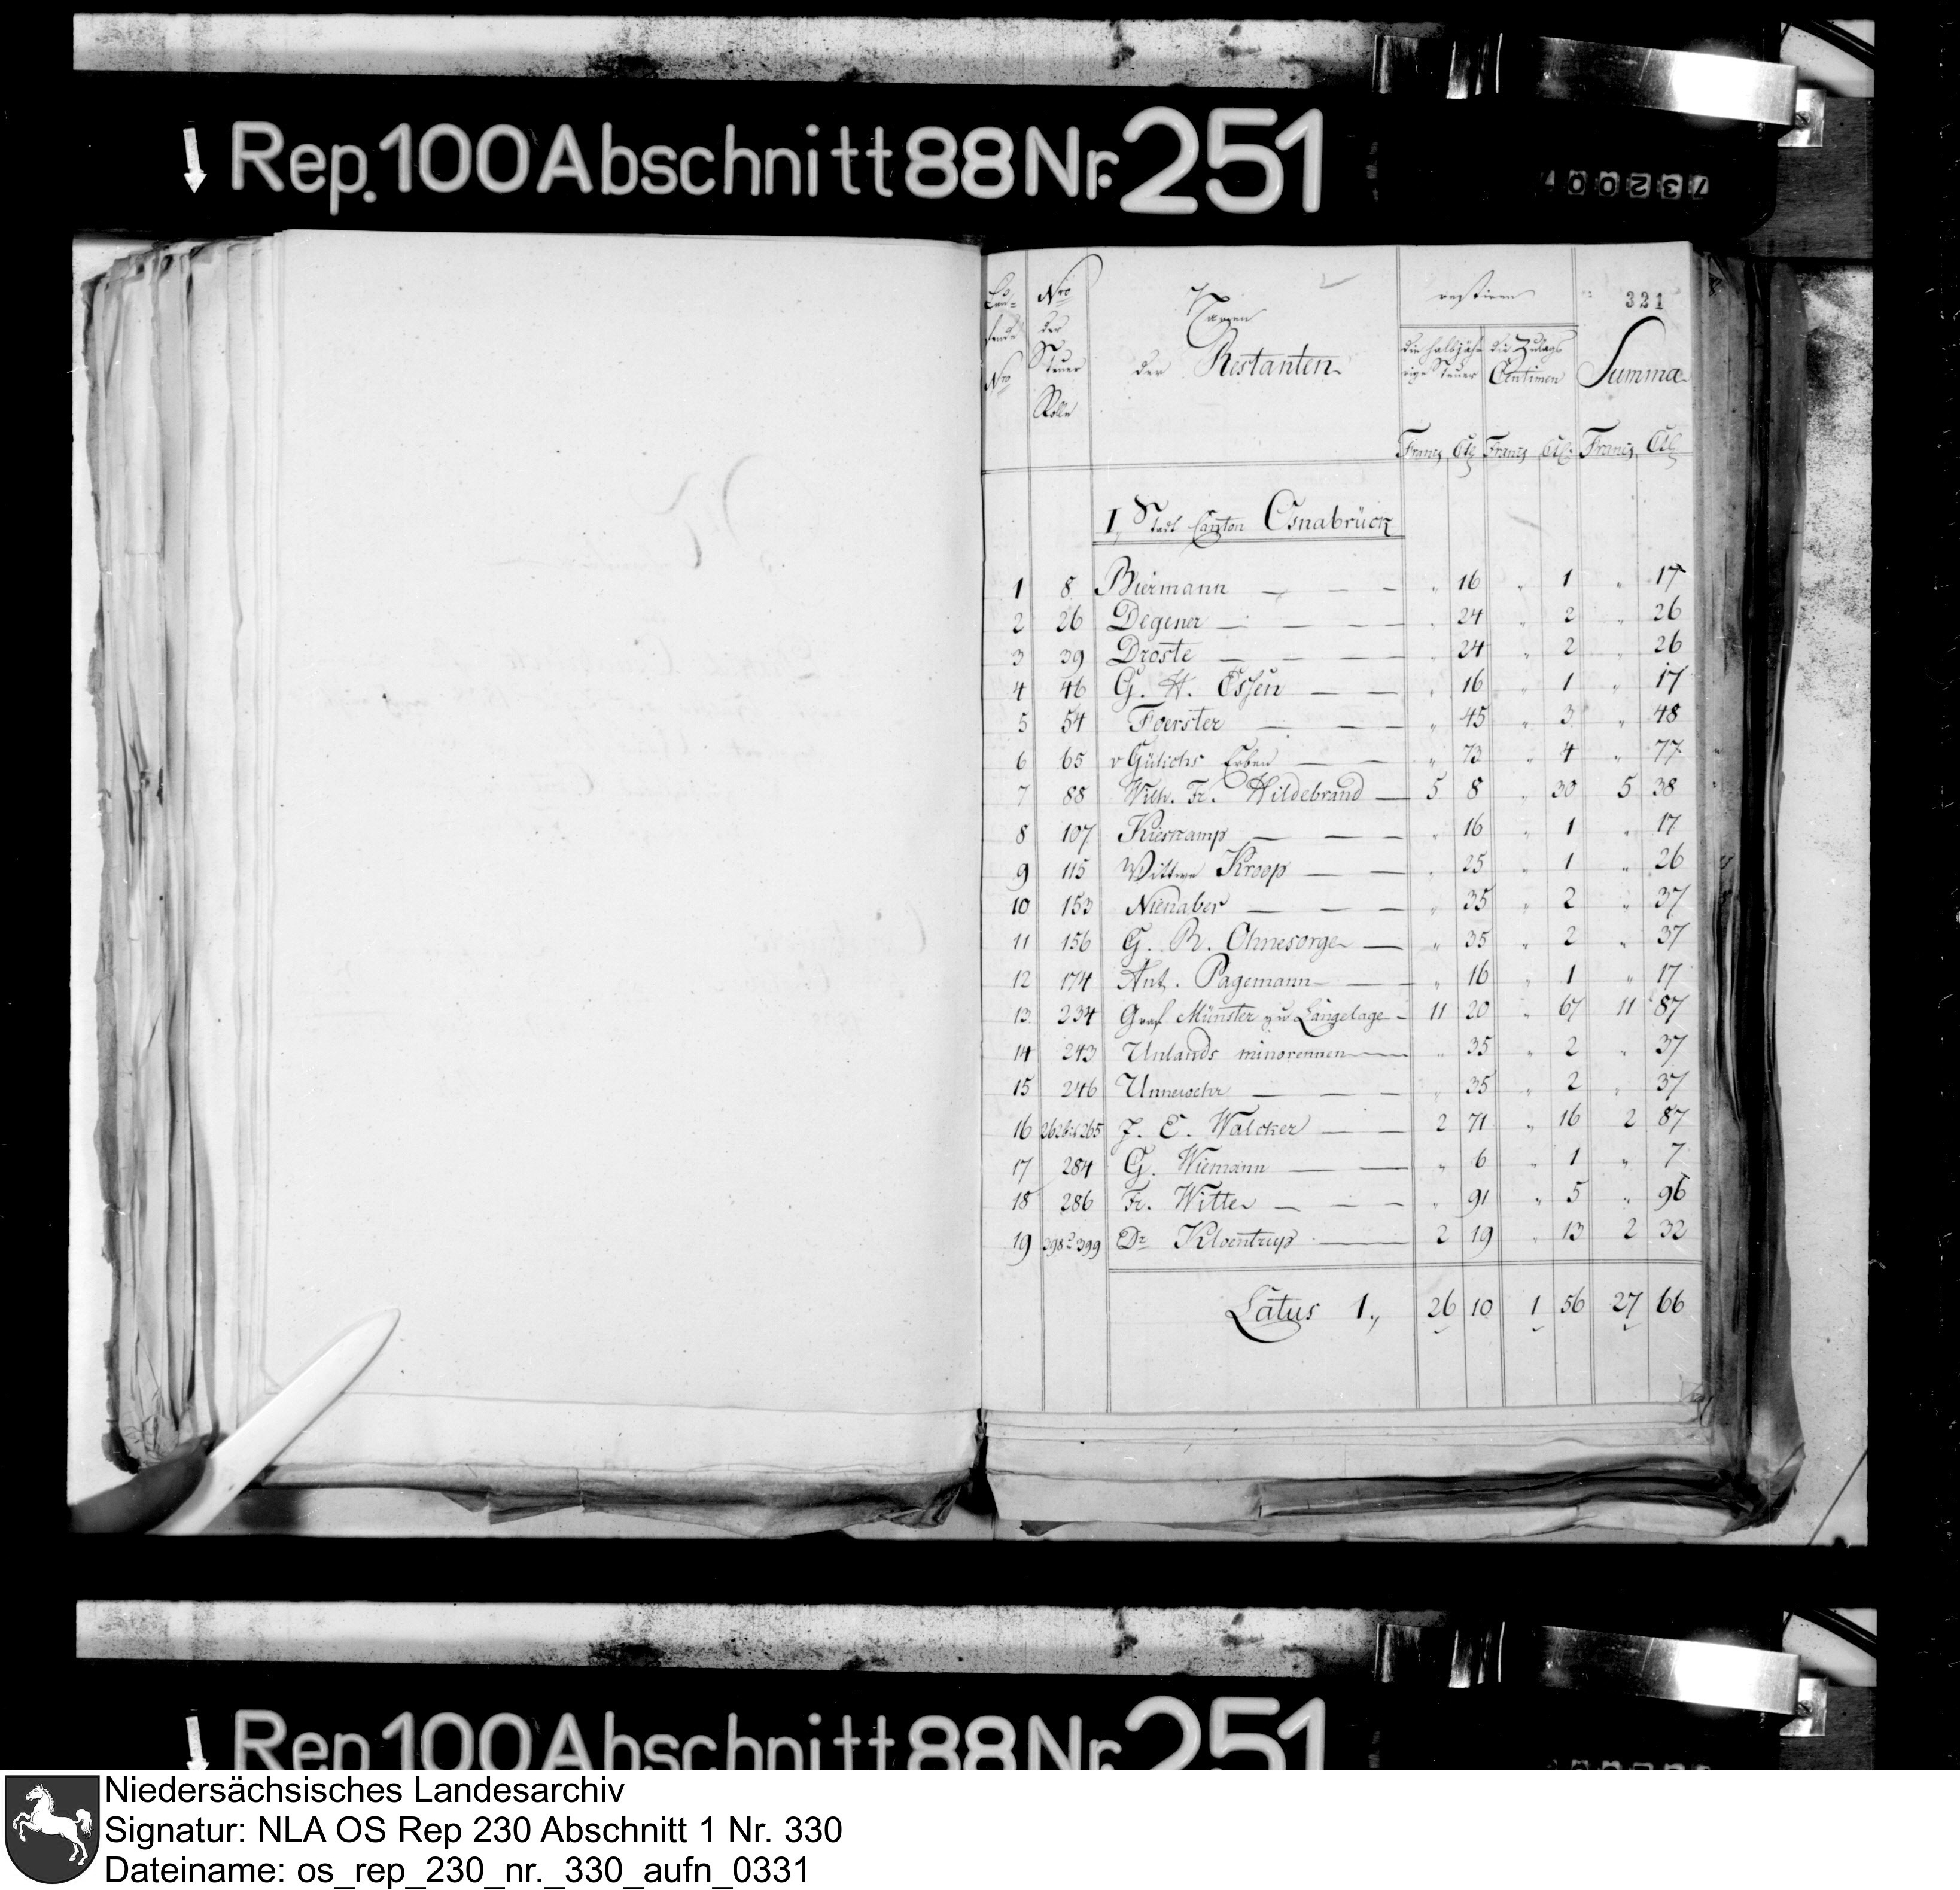 Rep. 100 Abschnitt 88 Nr. 251
321
Lau=
fende
Nro
Nro
der
Steuer
Rolle
Namen
der Restanten
restiren
die halbjäh=
rige Steuer
die Zulags
Centimen
Summa
Francs Cts Francs Cts Francs Cts
I, Stadt Canton Osnabrück
1 8 Biermann — — — " 16 " 1 " 17
2 26 Degener — — — — " 24 " 2 " 26
3 39 Droste — — — — " 24 " 2 " 26
4 46 G. H. Essen — — " 16 " 1 " 17
5 54 Foerster — — — " 45 " 3 " 48
6 65 v Gülichs Erben — — " 73 " 4 " 77
7 88 Wilh. Fr. Hildebrand — 5 8 " 30 5 38
8 107 Kieskamp — — — " 16 " 1 " 17
9 115 Wittwe Kroop — — " 25 " 1 " 26
10 153 Nienaber — — — " 35 " 2 " 37
11 156 G. R. Ohnesorge — " 35 " 2 " 37
12 174 Ant. Pagemann — — " 16 " 1 " 17
13 234 Graf Münster zu Langelage - 11 20 " 67 11 87
14 243 Unlands minorennen — " 35 " 2 " 37
15 246 Unnewehr — — — " 35 " 2 " 37
16 262 bis 265 J. E. Walcker — — 2 71 " 16 2 87
17 284 G. Wiemann — — " 6 " 1 " 7
18 286 Fr. Witte — — — " 91 " 5 " 96
19 398 399 Dr Kloentrup — 2 19 " 13 2 32
Latus 1., 26 10 1 56 27 66
Rep. 100 Abschnitt 88 Nr. 251
Niedersächsisches Landesarchiv
Signatur: NLA OS Rep 230 Abschnitt 1 Nr. 330
Dateiname: os_rep_230_nr._330_aufn_0331